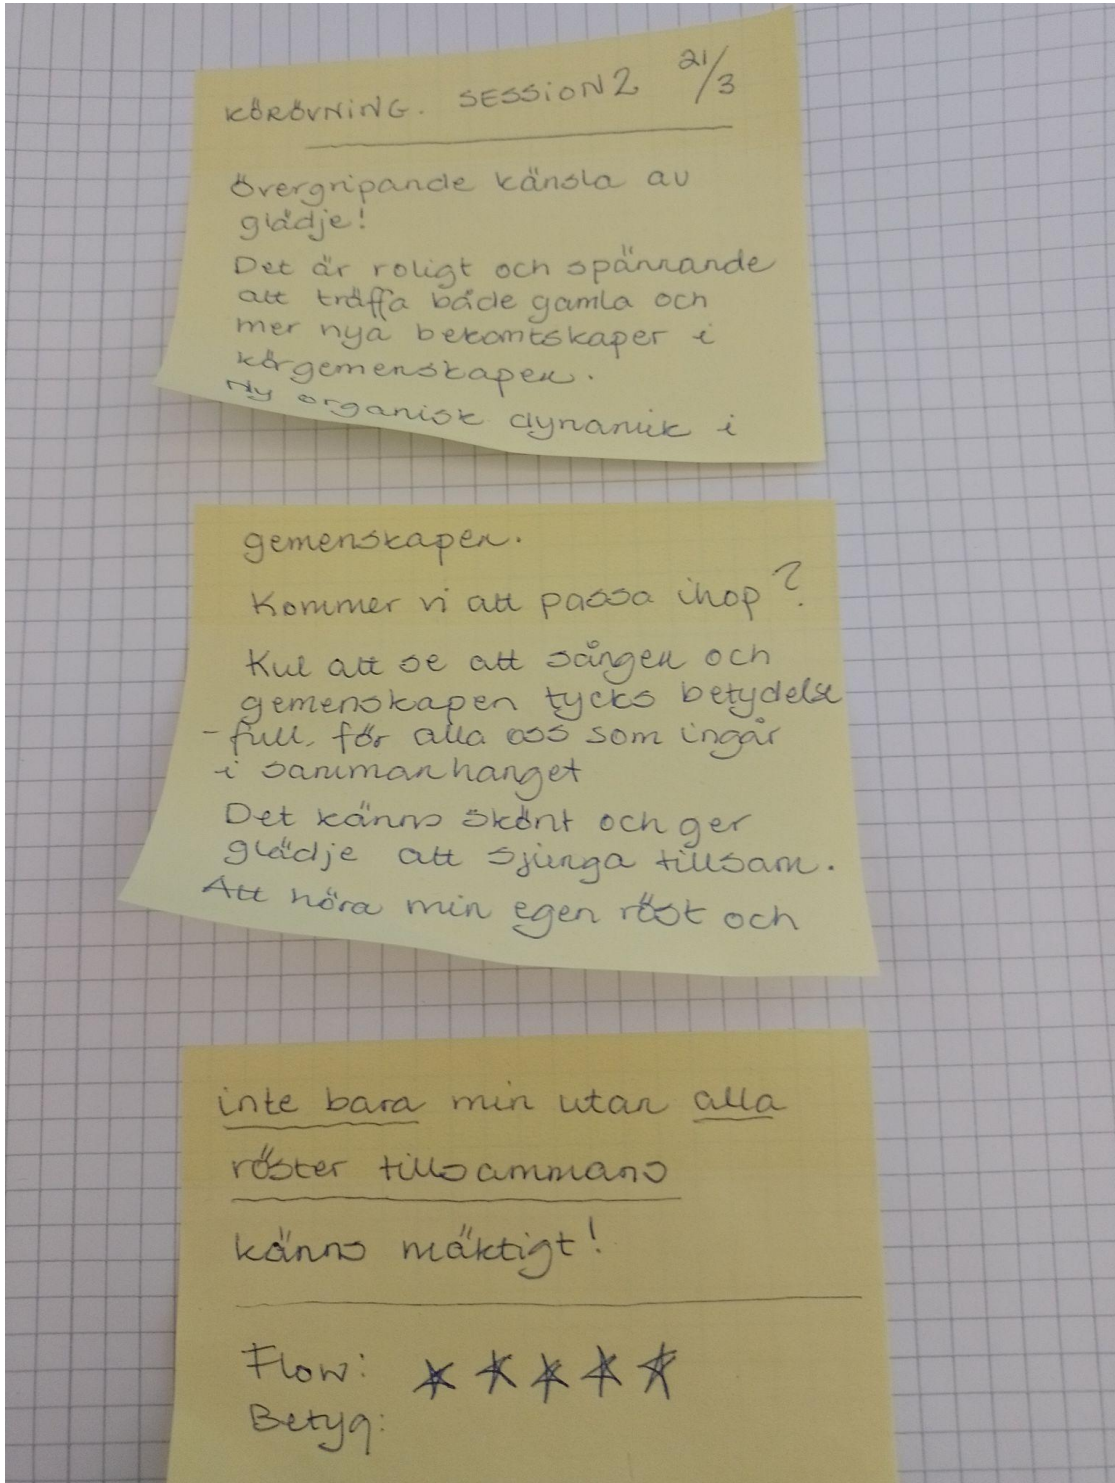 KÖRÖVNING. SESSION 2 21/3
Övergripande känsla av
glädje!
Det är roligt och spännande
att träffa både gamla och
mer nya bekantskaper i
körgemenskapen.
Ny organisk dynamik i
gemenskapen.
Kommer vi att passa ihop?
Kul att se att sången och
gemenskapen tycks betydelse
-full, för alla oss som ingår
i sammanhanget
Det känns skönt och ger
glädje att sjunga tillsam.
Att höra min egen röst och
inte bara min utan alla
röster tillsammans
känns mäktigt!
Flow: ★ ★ ★ ★ ★
Betyg: